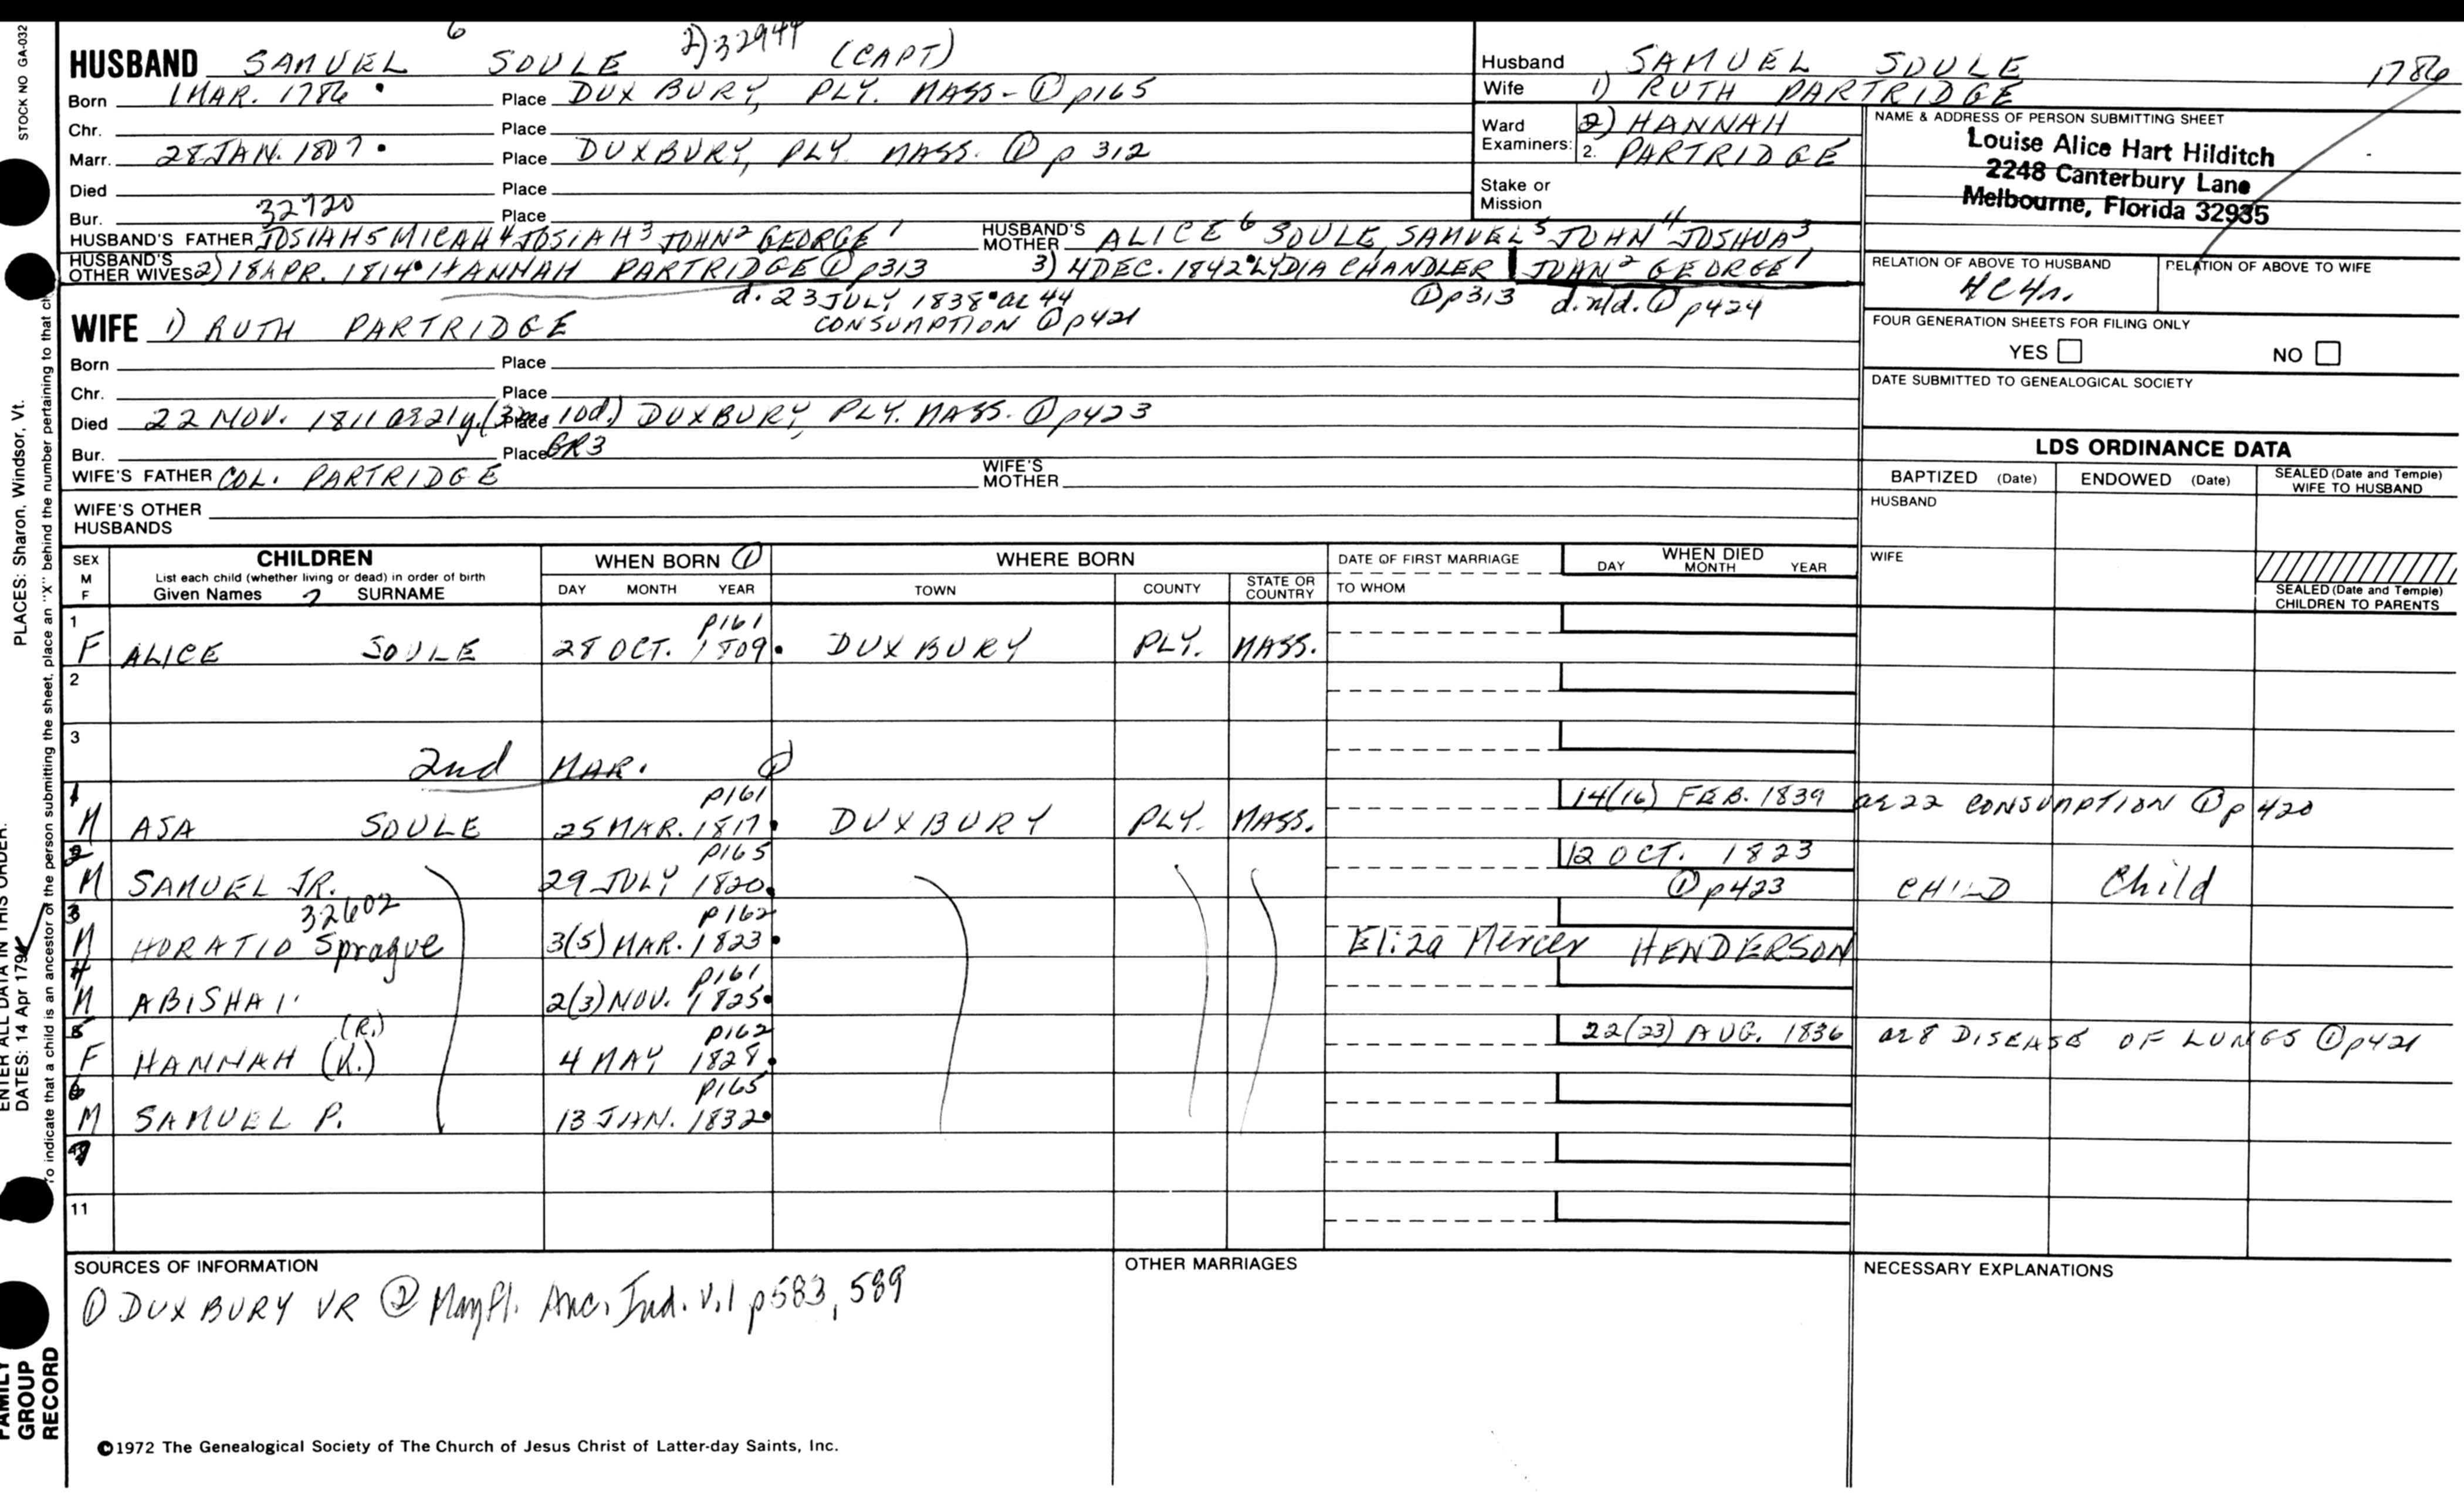 STOCK NO GA-032
6 2)32944
HUSBAND SAMUEL SOULE (CAPT)
Born 1 MAR. 1786 • Place DUXBURY, PLY. MASS - ① p165
Chr. Place
Marr. 28 JAN. 1807 • Place DUXBURY, PLY. MASS. ① p 312
Died Place
Bur. 32720 Place
HUSBAND'S FATHER JOSIAH 5 MICAH 4 JOSIAH 3 JOHN 2 GEORGE 1 HUSBAND'S MOTHER ALICE 6 SOULE, SAMUEL 5 JOHN 4 JOSHUA 3,
HUSBAND'S OTHER WIVES 2) 18 APR. 1814 • HANNAH PARTRIDGE ① p313 3) 4 DEC. 1842 • LYDIA CHANDLER JOHN 2 GEORGE 1
d. 23 JULY 1838 • ae 44 ① p313 d. n/d. ① p424
CONSUMPTION ① p421
WIFE 1) RUTH PARTRIDGE
Born Place
Chr. Place
Died 22 NOV. 1811 ae 21y. (3m 10d.) Place DUXBURY, PLY. MASS. ① p423
Bur. Place GR3
WIFE'S FATHER COL. PARTRIDGE WIFE'S MOTHER
WIFE'S OTHER HUSBANDS
Husband SAMUEL SOULE 1786
Wife 1) RUTH PARTRIDGE
Ward 2) HANNAH
Examiners: 2. PARTRIDGE
Stake or Mission
NAME & ADDRESS OF PERSON SUBMITTING SHEET
Louise Alice Hart Hilditch
2248 Canterbury Lane
Melbourne, Florida 32935
RELATION OF ABOVE TO HUSBAND RELATION OF ABOVE TO WIFE
FOUR GENERATION SHEETS FOR FILING ONLY
YES NO
DATE SUBMITTED TO GENEALOGICAL SOCIETY
LDS ORDINANCE DATA
BAPTIZED (Date) ENDOWED (Date) SEALED (Date and Temple) WIFE TO HUSBAND
HUSBAND
WIFE
SEALED (Date and Temple) CHILDREN TO PARENTS
SEX M F CHILDREN WHEN BORN ① WHERE BORN DATE OF FIRST MARRIAGE WHEN DIED
List each child (whether living or dead) in order of birth
Given Names 7 SURNAME DAY MONTH YEAR TOWN COUNTY STATE OR COUNTRY TO WHOM DAY MONTH YEAR
1 p161
F ALICE SOULE 28 OCT. 1809 • DUXBURY PLY. MASS.
2
3
2nd MAR. ①
1 p161 14(16) FEB. 1839 ae 22 CONSUMPTION ① p 420
M ASA SOULE 25 MAR. 1817 • DUXBURY PLY. MASS.
2 p165 12 OCT. 1823
M SAMUEL JR. 29 JULY 1820. ① p423 CHILD Child
3 32602 p162
M HORATIO Sprague 3(5) MAR. 1823 • Eliza Mercer HENDERSON
4 p161
M ABISHAI 2(3) NOV. 1825 •
5 (R.) p162 22(23) AUG. 1836 ae 8 DISEASE OF LUNGS ① p421
F HANNAH (K.) 4 MAY 1828 •
6 p165
M SAMUEL P. 13 JAN. 1832 •
7
11
SOURCES OF INFORMATION OTHER MARRIAGES NECESSARY EXPLANATIONS
① DUXBURY VR ② Mayfl. Anc. Ind. V.1 p583, 589
©1972 The Genealogical Society of The Church of Jesus Christ of Latter-day Saints, Inc.
PLACES: Sharon, Windsor, Vt.
ENTER ALL DATA IN THIS ORDER:
DATES: 14 Apr 1794
To indicate that a child is an ancestor of the person submitting the sheet, place an "X" behind the number pertaining to that
FAMILY GROUP RECORD